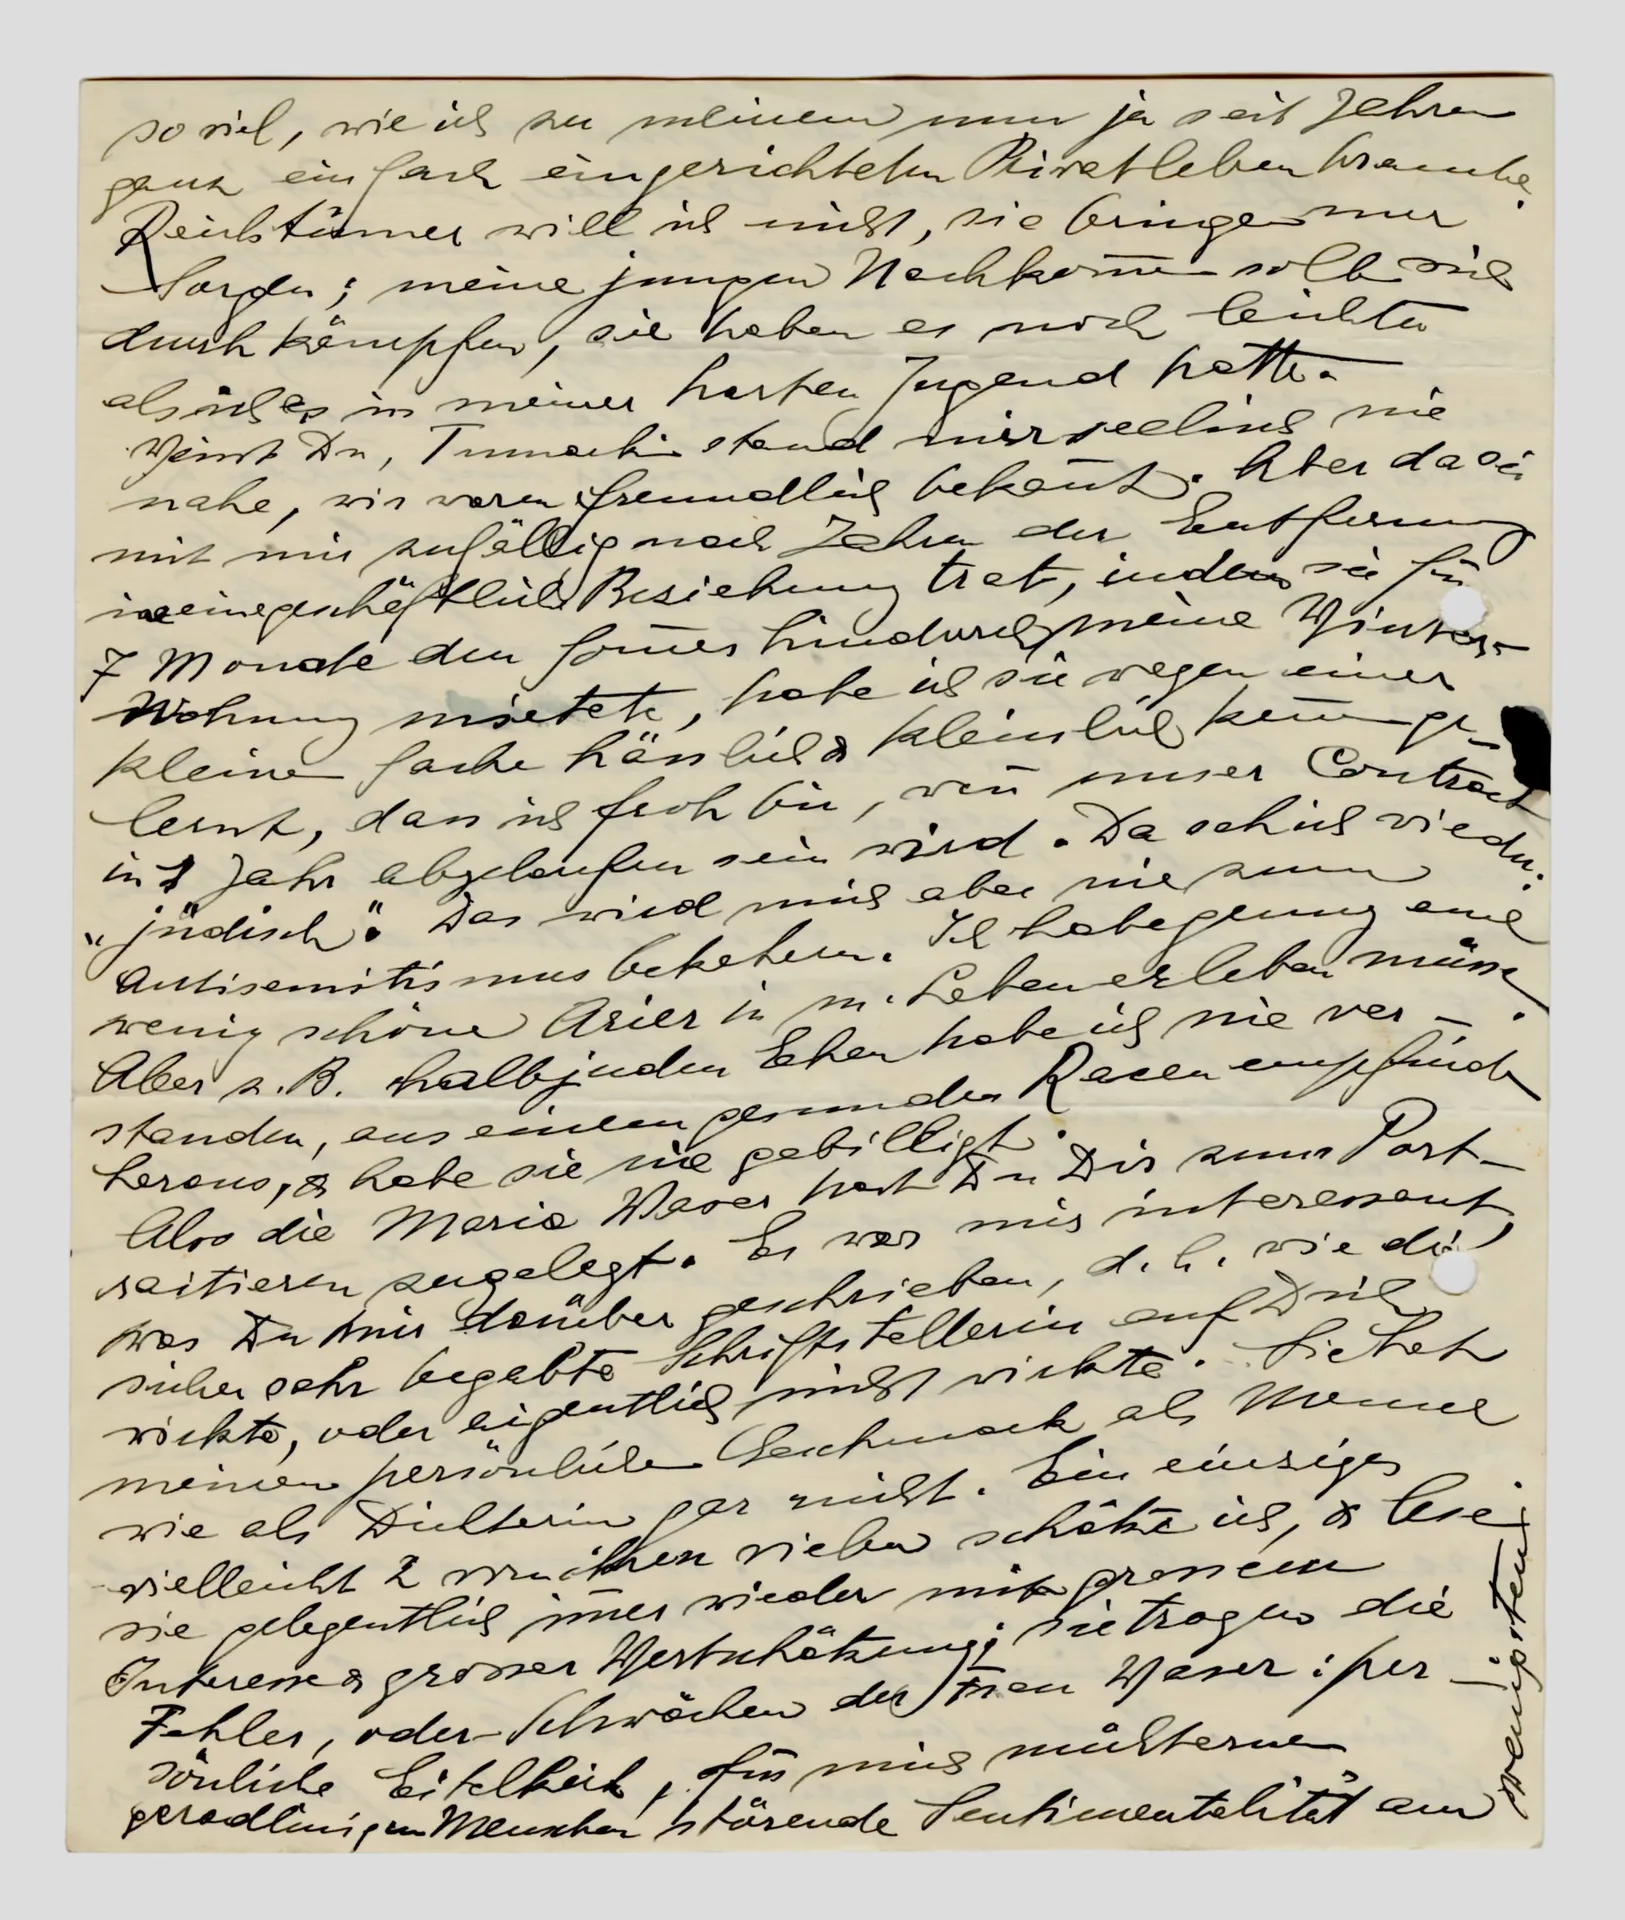 so viel, wie ich zu meinem nun ja seit Jahren
ganz einfach eingerichteten Privatleben brauche.
Reichtümer will ich nicht, sie bringen nur
Sorgen; meine jungen Nachkom̄en sollen sich
durchkämpfen, sie haben es noch leichter
als ich es in meiner harten Jugend hatte.
Weisst Du, stand mir seelisch nie
nahe, wir waren freundlich bekan̄t. Aber da sie
mit mir zufällig nach Jahren der Entfernung
in eine geschäftliche Beziehung trat, indem sie für
7 Monate den Som̄er hindurch meine Winter-
Wohnung mietete, habe ich sie wegen einer
kleinen Sache hässlich & kleinlich ken̄en ge-
lernt, dass ich froh bin, wen̄ unser Contract
in 1 Jahr abgelaufen sein wird. Da sah ich wieder:
„jüdisch". Das wird mich aber nie zum
Antisemitismus bekehren. Ich habe genug und
wenig schöne Arier in m. Leben erleben müssen.
Aber z. B. halbjuden Ehen habe ich nie ver-
standen, aus einem gesunden Racenempfinden
heraus, & habe sie nie gebilligt.
Also die Maria Waser hast Du Dir zum Port-
raitieren zugelegt. Es war mir interessant,
was Du mir darüber geschrieben, d. h. wie die
sicher sehr begabte Schriftstellerin auf Dich
wirkte, oder eigentlich nicht wirkte. Sie hat
meinen persönlichen Geschmack als Mensch
wie als Dichterin gar nicht. Ein einziges
vielleicht 2 von ihren vielen schätze ich, & lese
sie gelegentlich im̄er wieder mit grossem
Interesse & grosser Wertschätzung; sie tragen die
Fehler, oder Schwächen der Frau Waser: per-
sönliche Eitelkeit, für mich nüchternen
geradlinigen Menschen störende Sentimentalität am
wenigstens